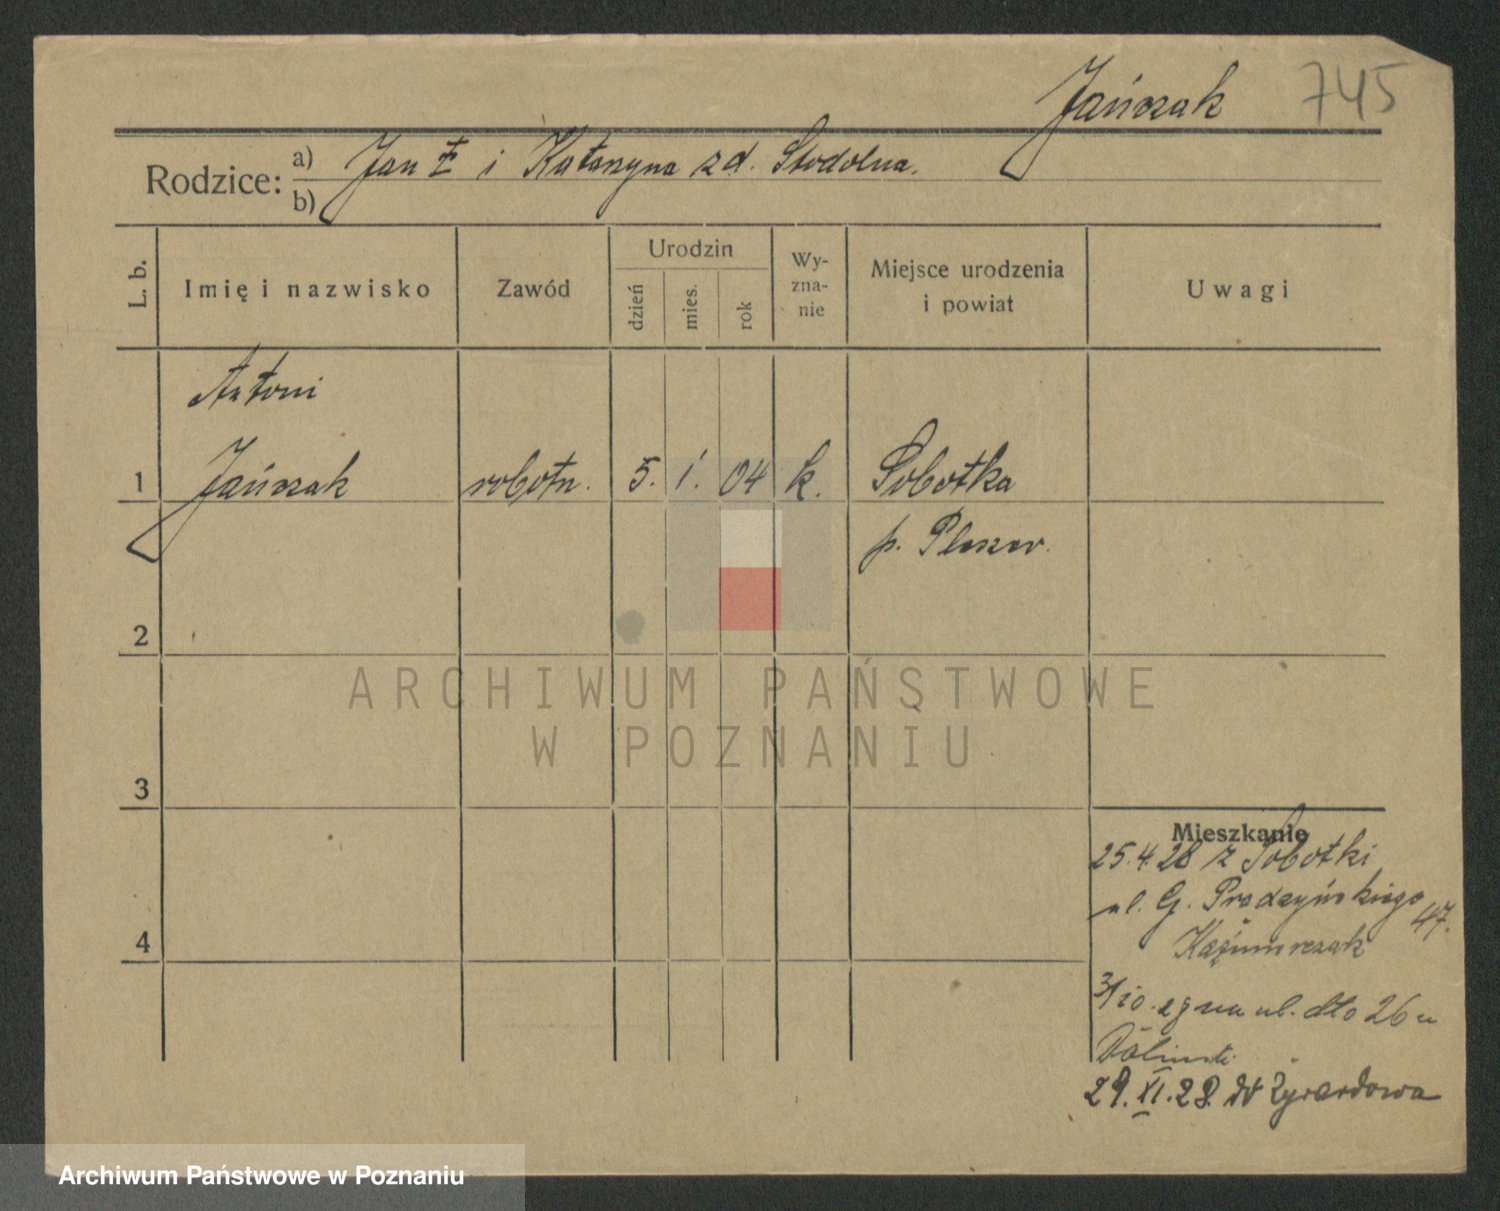 Jańczak 745
Rodzice: a) Jan ‡ i Katarzyna zd. Stodolna.
b)
L. b.
Imię i nazwisko
Zawód
Urodzin
dzień
mies.
rok
Wy-
zna-
nie
Miejsce urodzenia
i powiat
Uwagi
Antoni
1 Jańczak robotn. 5. 1. 04 k. Sobotka
p. Pleszew.
2
ARCHIWUM PAŃSTWOWE
W POZNANIU
3
Mieszkanie
25.4.28 z Sobotki
ul. G. Prądzyńskiego 47.
4
Kaźmierczak
na ul. dto 26 u
29.XI.28. do Żyrardowa
Archiwum Państwowe w Poznaniu